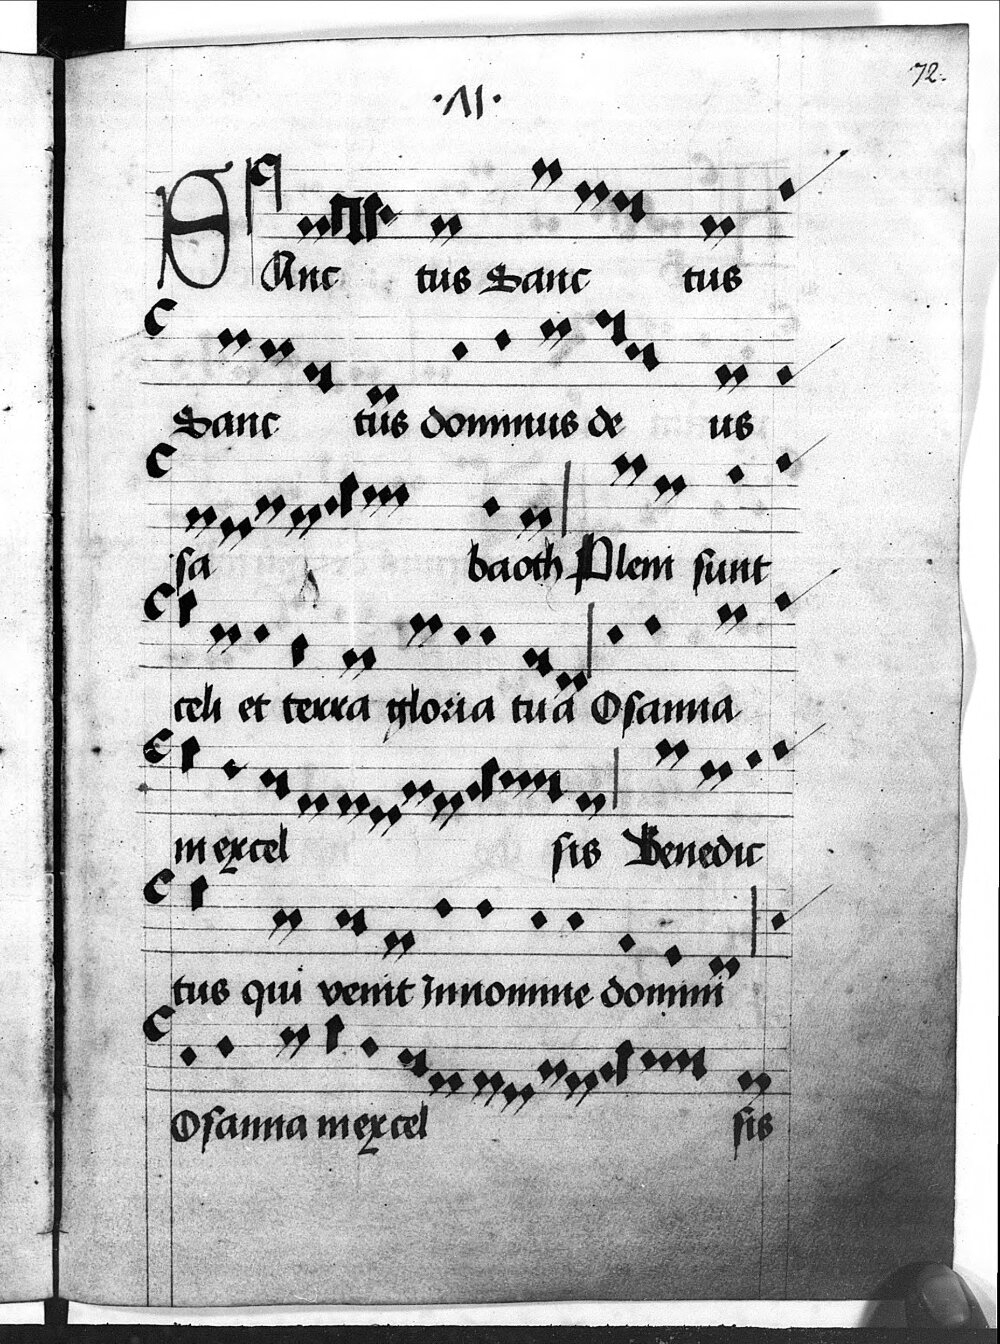 72.
·VI·
SAnc tus Sanc tus
Sanc tus dominus de us
sa baoth Pleni sunt
celi et terra gloria tua Osanna
in excel sis Benedic
tus qui venit In nomine domini
Osanna in excel sis